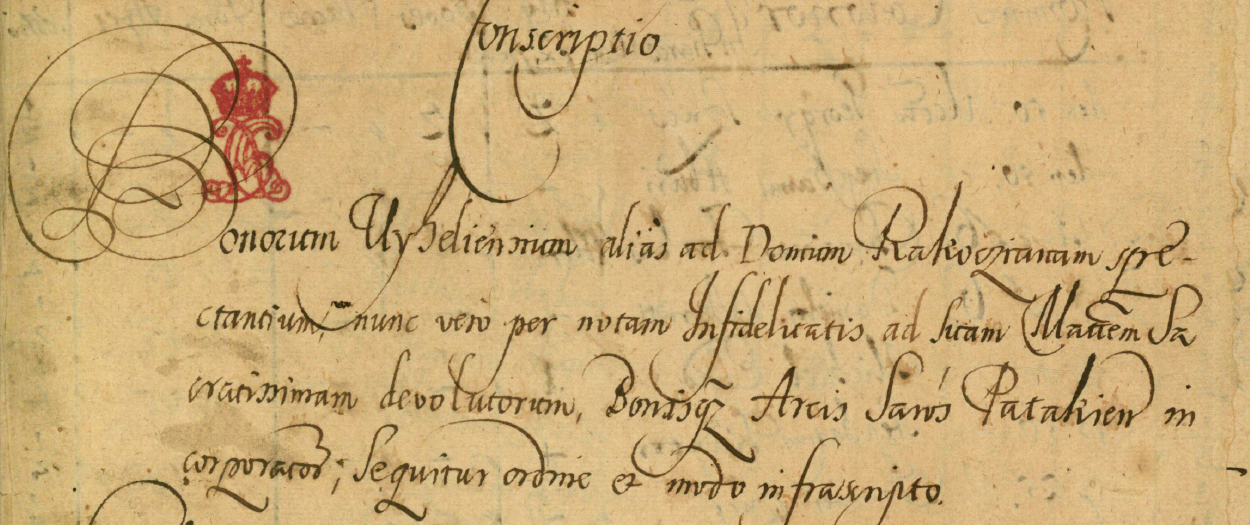 Conscriptio
Bonorum Uyheliensium aliàs ad Domum Rakoczianam spe-
ctantium, nunc vero per notam Infidelitatis ad suam Mattem Sa
cratissimam devolutorum, Bonisq Arcis Saros Patakien in
corporator; Sequitur ordine et modo infrascripto.